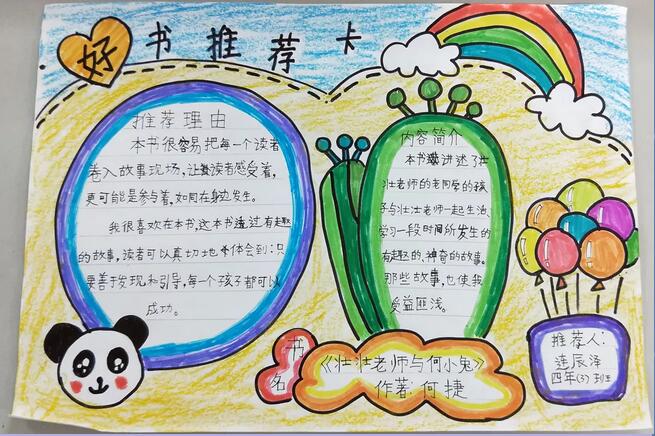 好书推荐卡
推荐理由
本书很容易把每一个读者
卷入故事现场，让读者感受着，
更可能是参与着，如同在身边发生。
我很喜欢在本书，这本书透过有趣
的故事，读者可以真切地体会到：只
要善于发现和引导，每一个孩子都可以
成功。
内容简介
本书讲述了壮
壮老师的老同学的孩
子与壮壮老师一起生活、
学习一段时间所发生的
有趣的、神奇的故事。
那些故事，也使我
受益匪浅。
书名
《壮壮老师与何小兔》
作者：何捷
推荐人：
连辰泽
四年(3)班